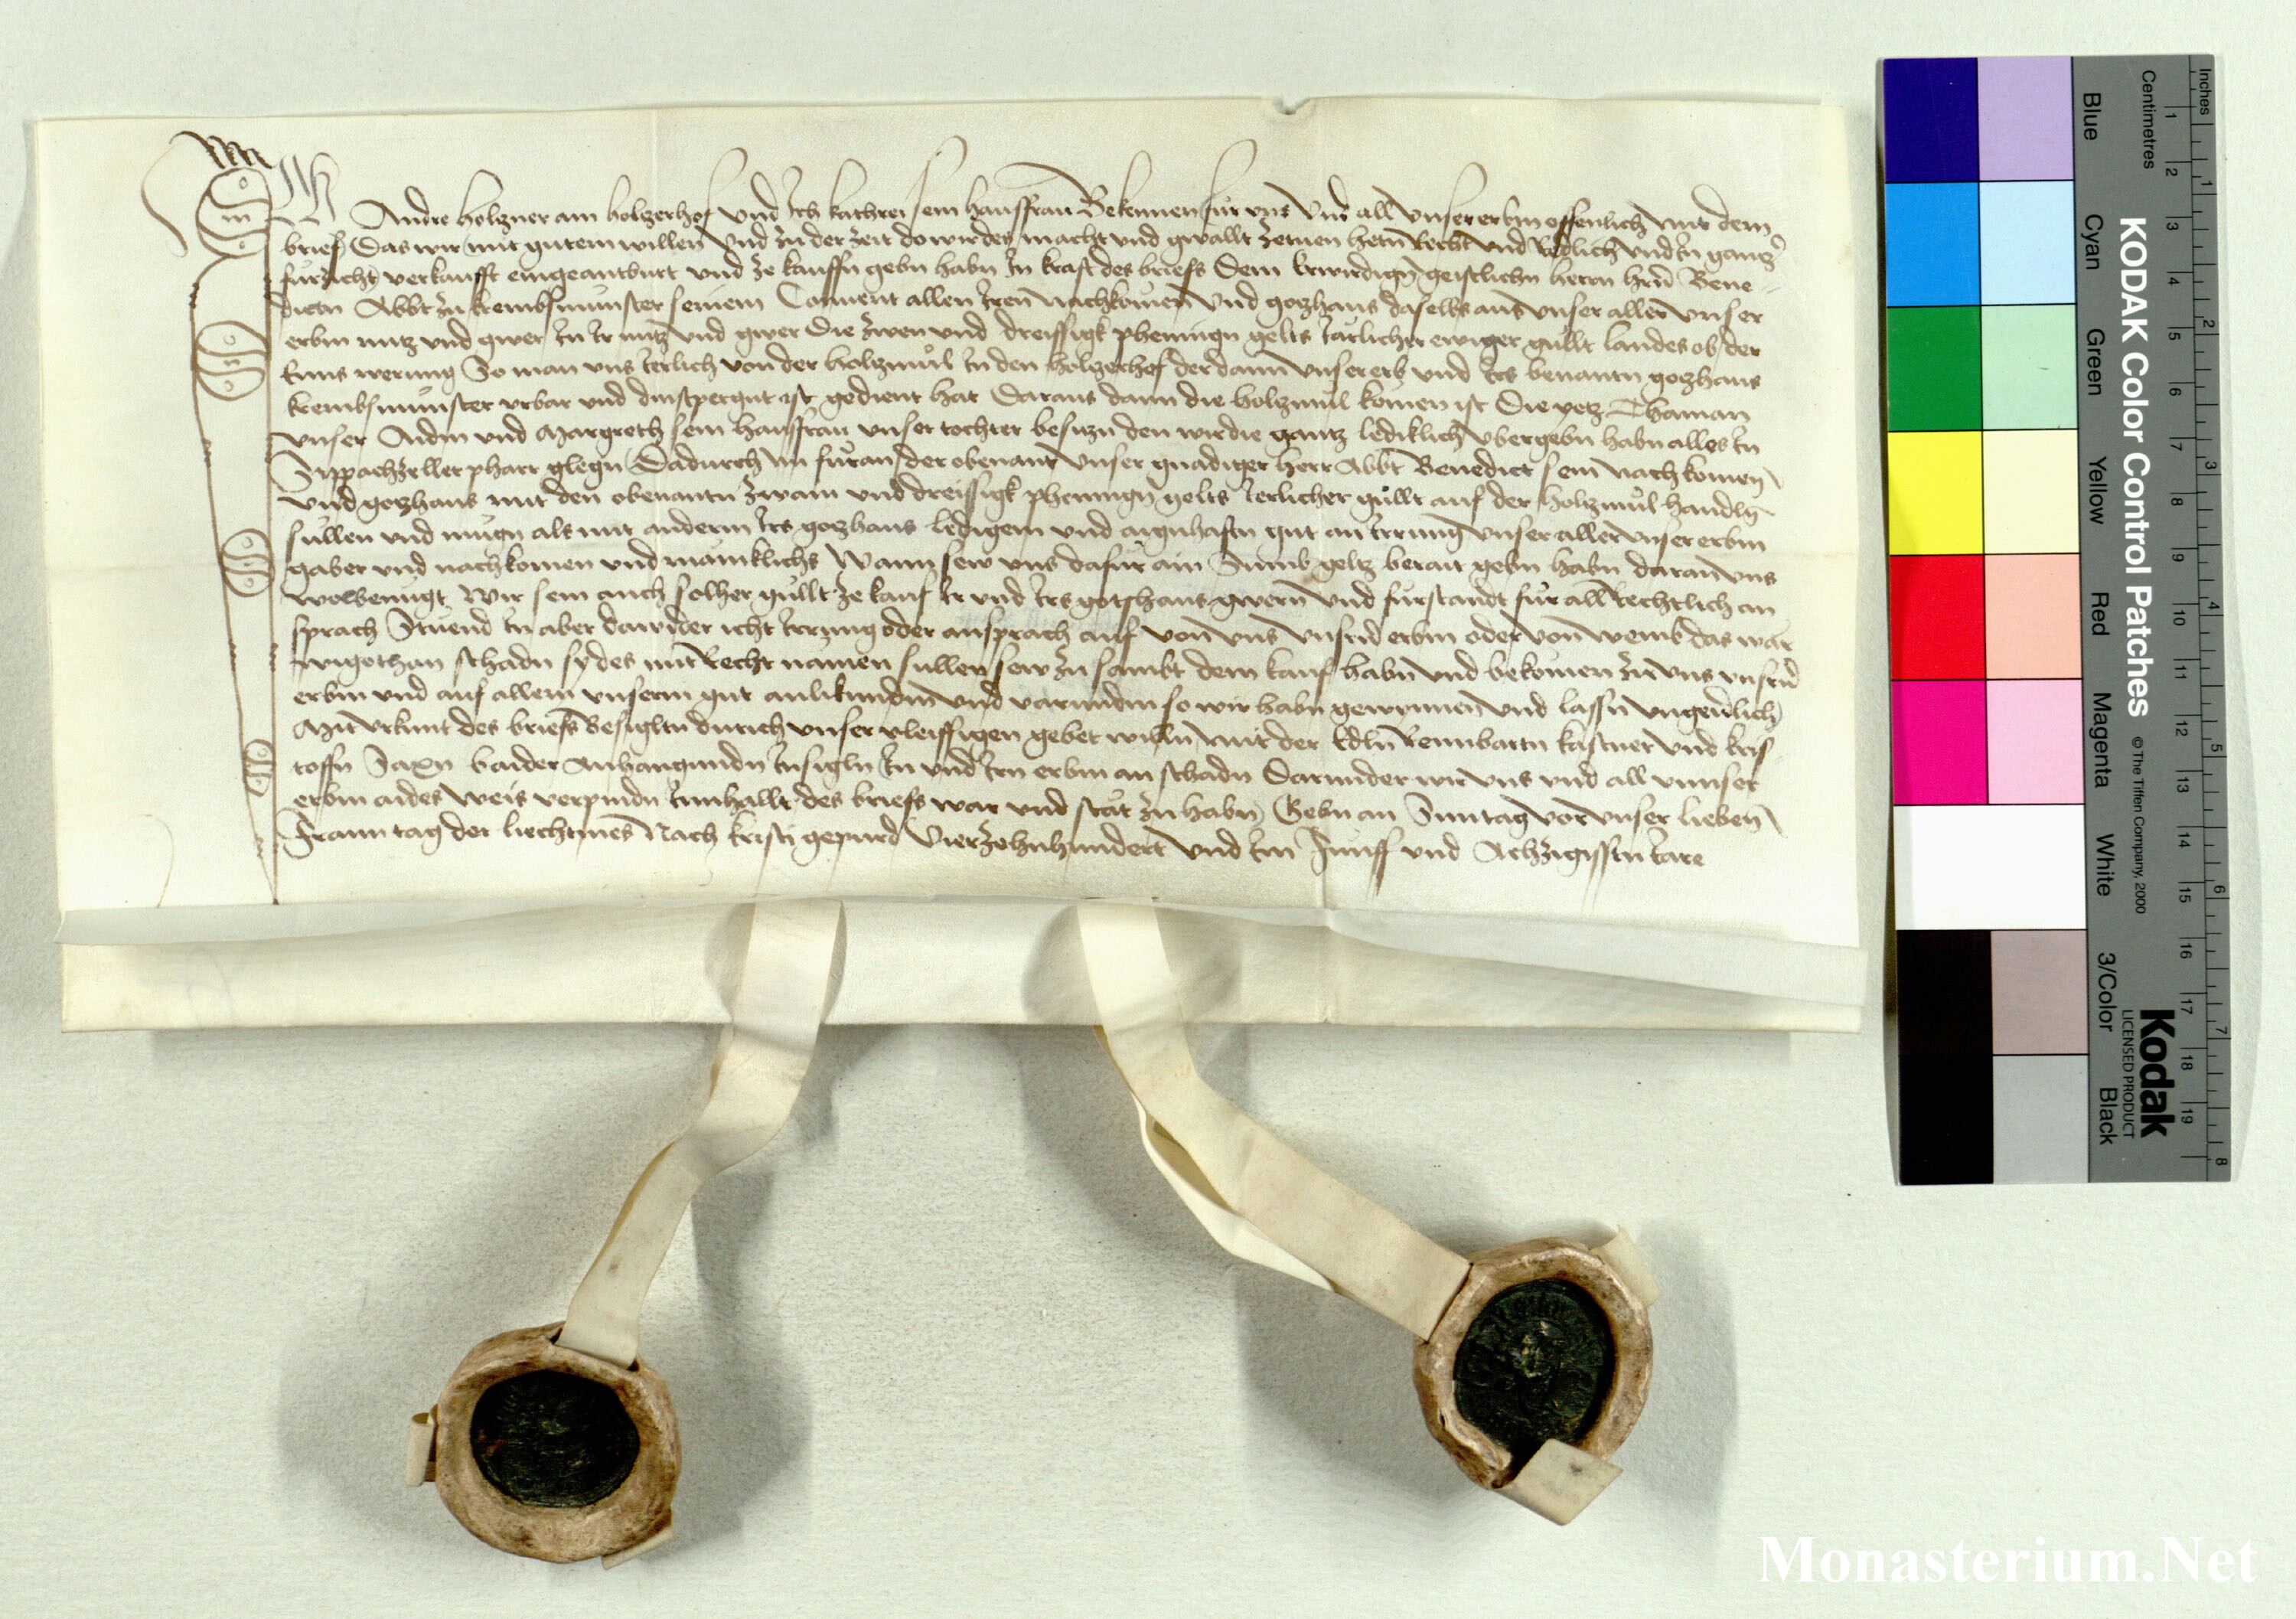 Ich Andre holzner am holzerhof Vnd Ich kathrei sein hausffrau Bekennen fur vns Vnd all Vnser erbm offenlich mit dem
brief Das wir mit gutem willen Vnd zu der zeit do wir des macht vnd gwallt ze tuen hetn Recht vnd Redlich vnd In gantz
furzicht verkaufft eingeantburt vnd ze kauffn gebn habn In kraft des briefs Dem Erwirdign geistlichn herrn hrn Bene
dictn Abbt zu krembsmunster seinem Conuent allen Iren Nachkomen Vnd gozhaus daselbs aus vnser aller vnser
erbm nutz vnd gwer In Ir nutz vnd gwer Die zwen vnd dreissigk phennign gelts Iarlicher ewiger gullt landes ob der
Enns werung So man vns Ierlich von der holzmul In den holzerhof der dann vnser erb vnd Irs benantn gozhaus
krembsmunster vrbar vnd dinstpergut ist gedient hat Daraus dann die holzmul komen ist Die yetz Thaman
vnser Aidm vnd Margreth sein hausffrau vnser tochter besitzn den wir die gantz lediklich vbergebn habn alles In
Sippachzeller pharr glegn Dadurch nu furan der obenant vnser gnadiger herr Abbt Benedict sein nachkomen
vnd gozhaus mit den obenantn zwain vnd dreissigk phennign gelts Ierlicher gullt auf der holzmul handln
sullen vnd mugn als mit anderm Irs gozhaus ledigem vnd aignhaftn gut an Irrung vnser aller vnser erbm
gaber vnd nachkomen vnd mainklichs Wann sew vns dafur ain Sumb geltz berait gebn habn daran vns
wolbenugt Wir sein auch solher gullt ze kauf Ir vnd Irs gotshaus gwern vnd furstandt fur all Rechtlich an
sprach Stuend In aber dawider icht Irrung oder ansprach auf von vns vnsrn erbm oder von wemb das war
wigethan schadn sy des mit Recht namen sullen sew zu sambt dem kauf habn vnd bekomen zu vns vnsrn
erbm vnd auf allem vnserm gut anlikundm vnd varundm so wir habn gewynnen vnd lassn vngeuerlich
Mit vrkunt des briefs Besigltn durich vnser vleissigen gebet willn mit der Edln Reinbartn kastner vnd kris
toffn Saxn baider Anhangundn Insigln In vnd Irn erbm an schadn Darunder wir vns vnd all vnnser
erbm aides weis verpindn Innhallt des briefs war vnd stat zu habn Gebn an Sunntag vor vnser lieben
Fraun tag der liechtmes Nach kristi gepurd Vierzehnhundert vnd Im Funff vnd Achzigisstn Iare
KODAK Color Control Patches
© The Tiffen Company, 2000
Kodak
LICENSED PRODUCT
Blue
Cyan
Green
Yellow
Red
Magenta
White
3/Color
Black
Inches
1 2 3 4 5 6 7 8
Centimetres
1 2 3 4 5 6 7 8 9 10 11 12 13 14 15 16 17 18 19
Monasterium.Net